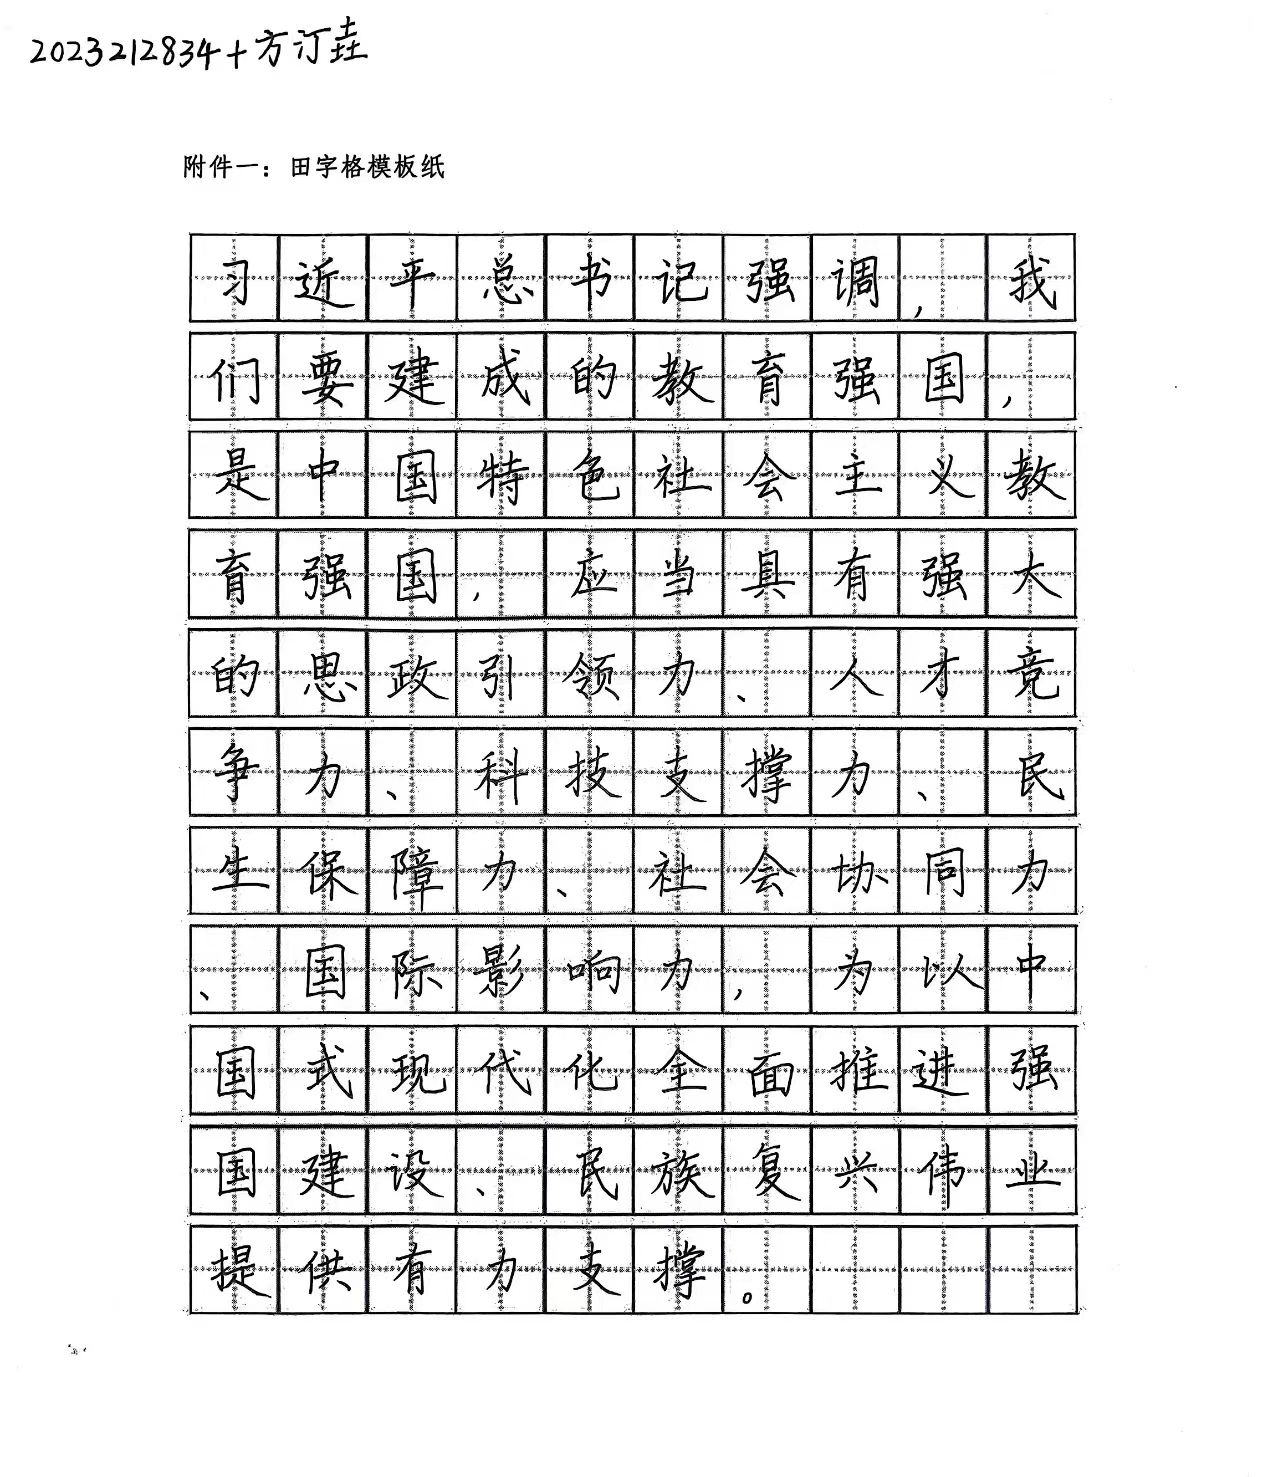 2023212834+方汀垚
附件一：田字格模板纸
习近平总书记强调，我
们要建成的教育强国，
是中国特色社会主义教
育强国，应当具有强大
的思政引领力、人才竞
争力、科技支撑力、民
生保障力、社会协同力
、国际影响力，为以中
国式现代化全面推进强
国建设、民族复兴伟业
提供有力支撑。